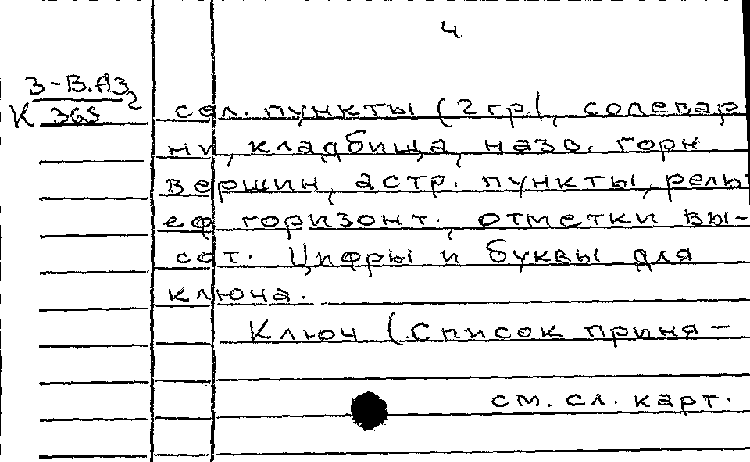 4
З-В.АЗ
К 2
365
сел. пункты (2 гр), солевар
ни, кладбища, назв. горн.
вершин, астр. пункты, рель
еф горизонт., отметки вы-
сот. Цифры и буквы для
ключа.
Ключ (Список приня-
см. сл. карт.